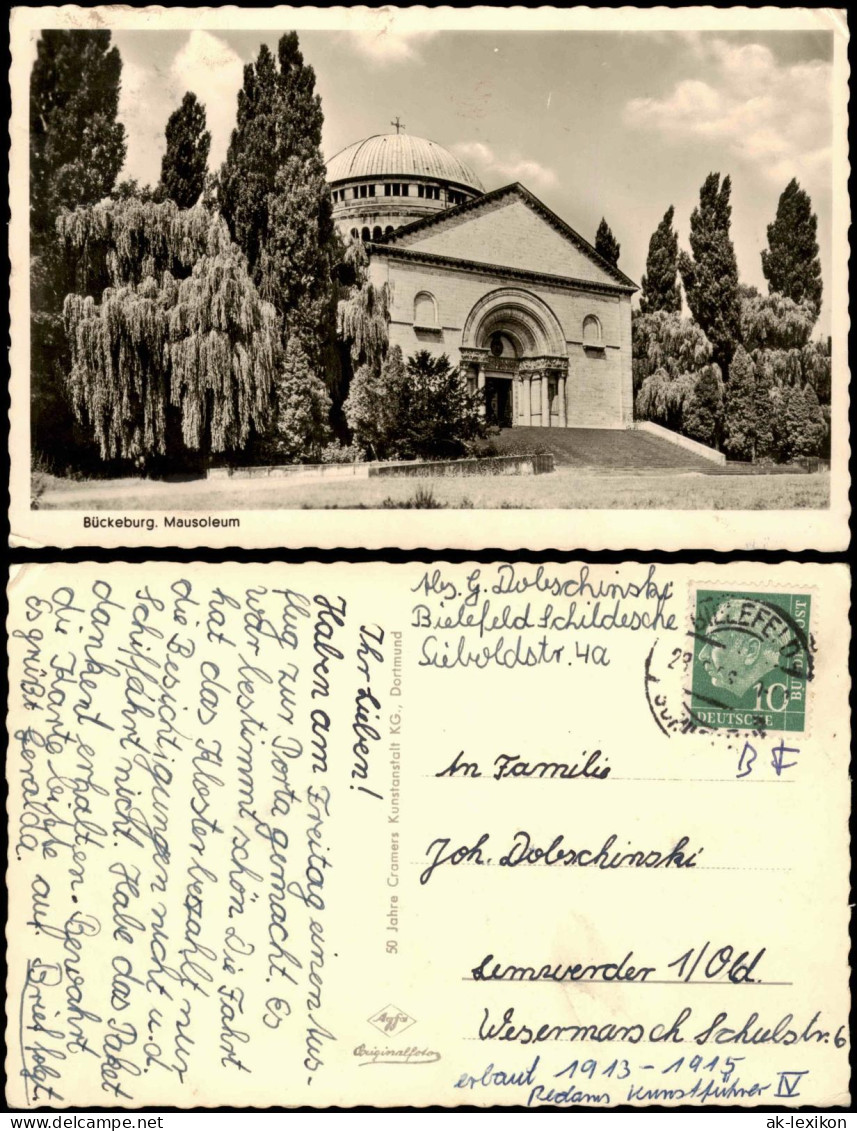 Bückeburg. Mausoleum
Abs. G. Dobschinski
Bielefeld Schildesche
Sieboldstr. 4a
BIELEFELD
DEUTSCHE
BUNDESPOST
10
Ihr Lieben!
Haben am Freitag einen Aus-
flug zur Porta gemacht. Es
war bestimmt schön. Die Fahrt
hat das Kloster bezahlt nur
die Besichtigungen nicht u. d.
Schiffahrt nicht. Habe das Paket
dankend erhalten. Bewahrt
die Karte bitte auf. Brief folgt.
Es grüßt Geralda.
50 Jahre Cramers Kunstanstalt KG., Dortmund
Agfa
Originalfoto
An Familie
Joh. Dobschinski
Lemwerder 1/Old.
Wesermarsch Schulstr. 6
erbaut 1913-1915
Reclams Kunstführer IV
www.ansichtskarten-lexikon.de
ak-lexikon